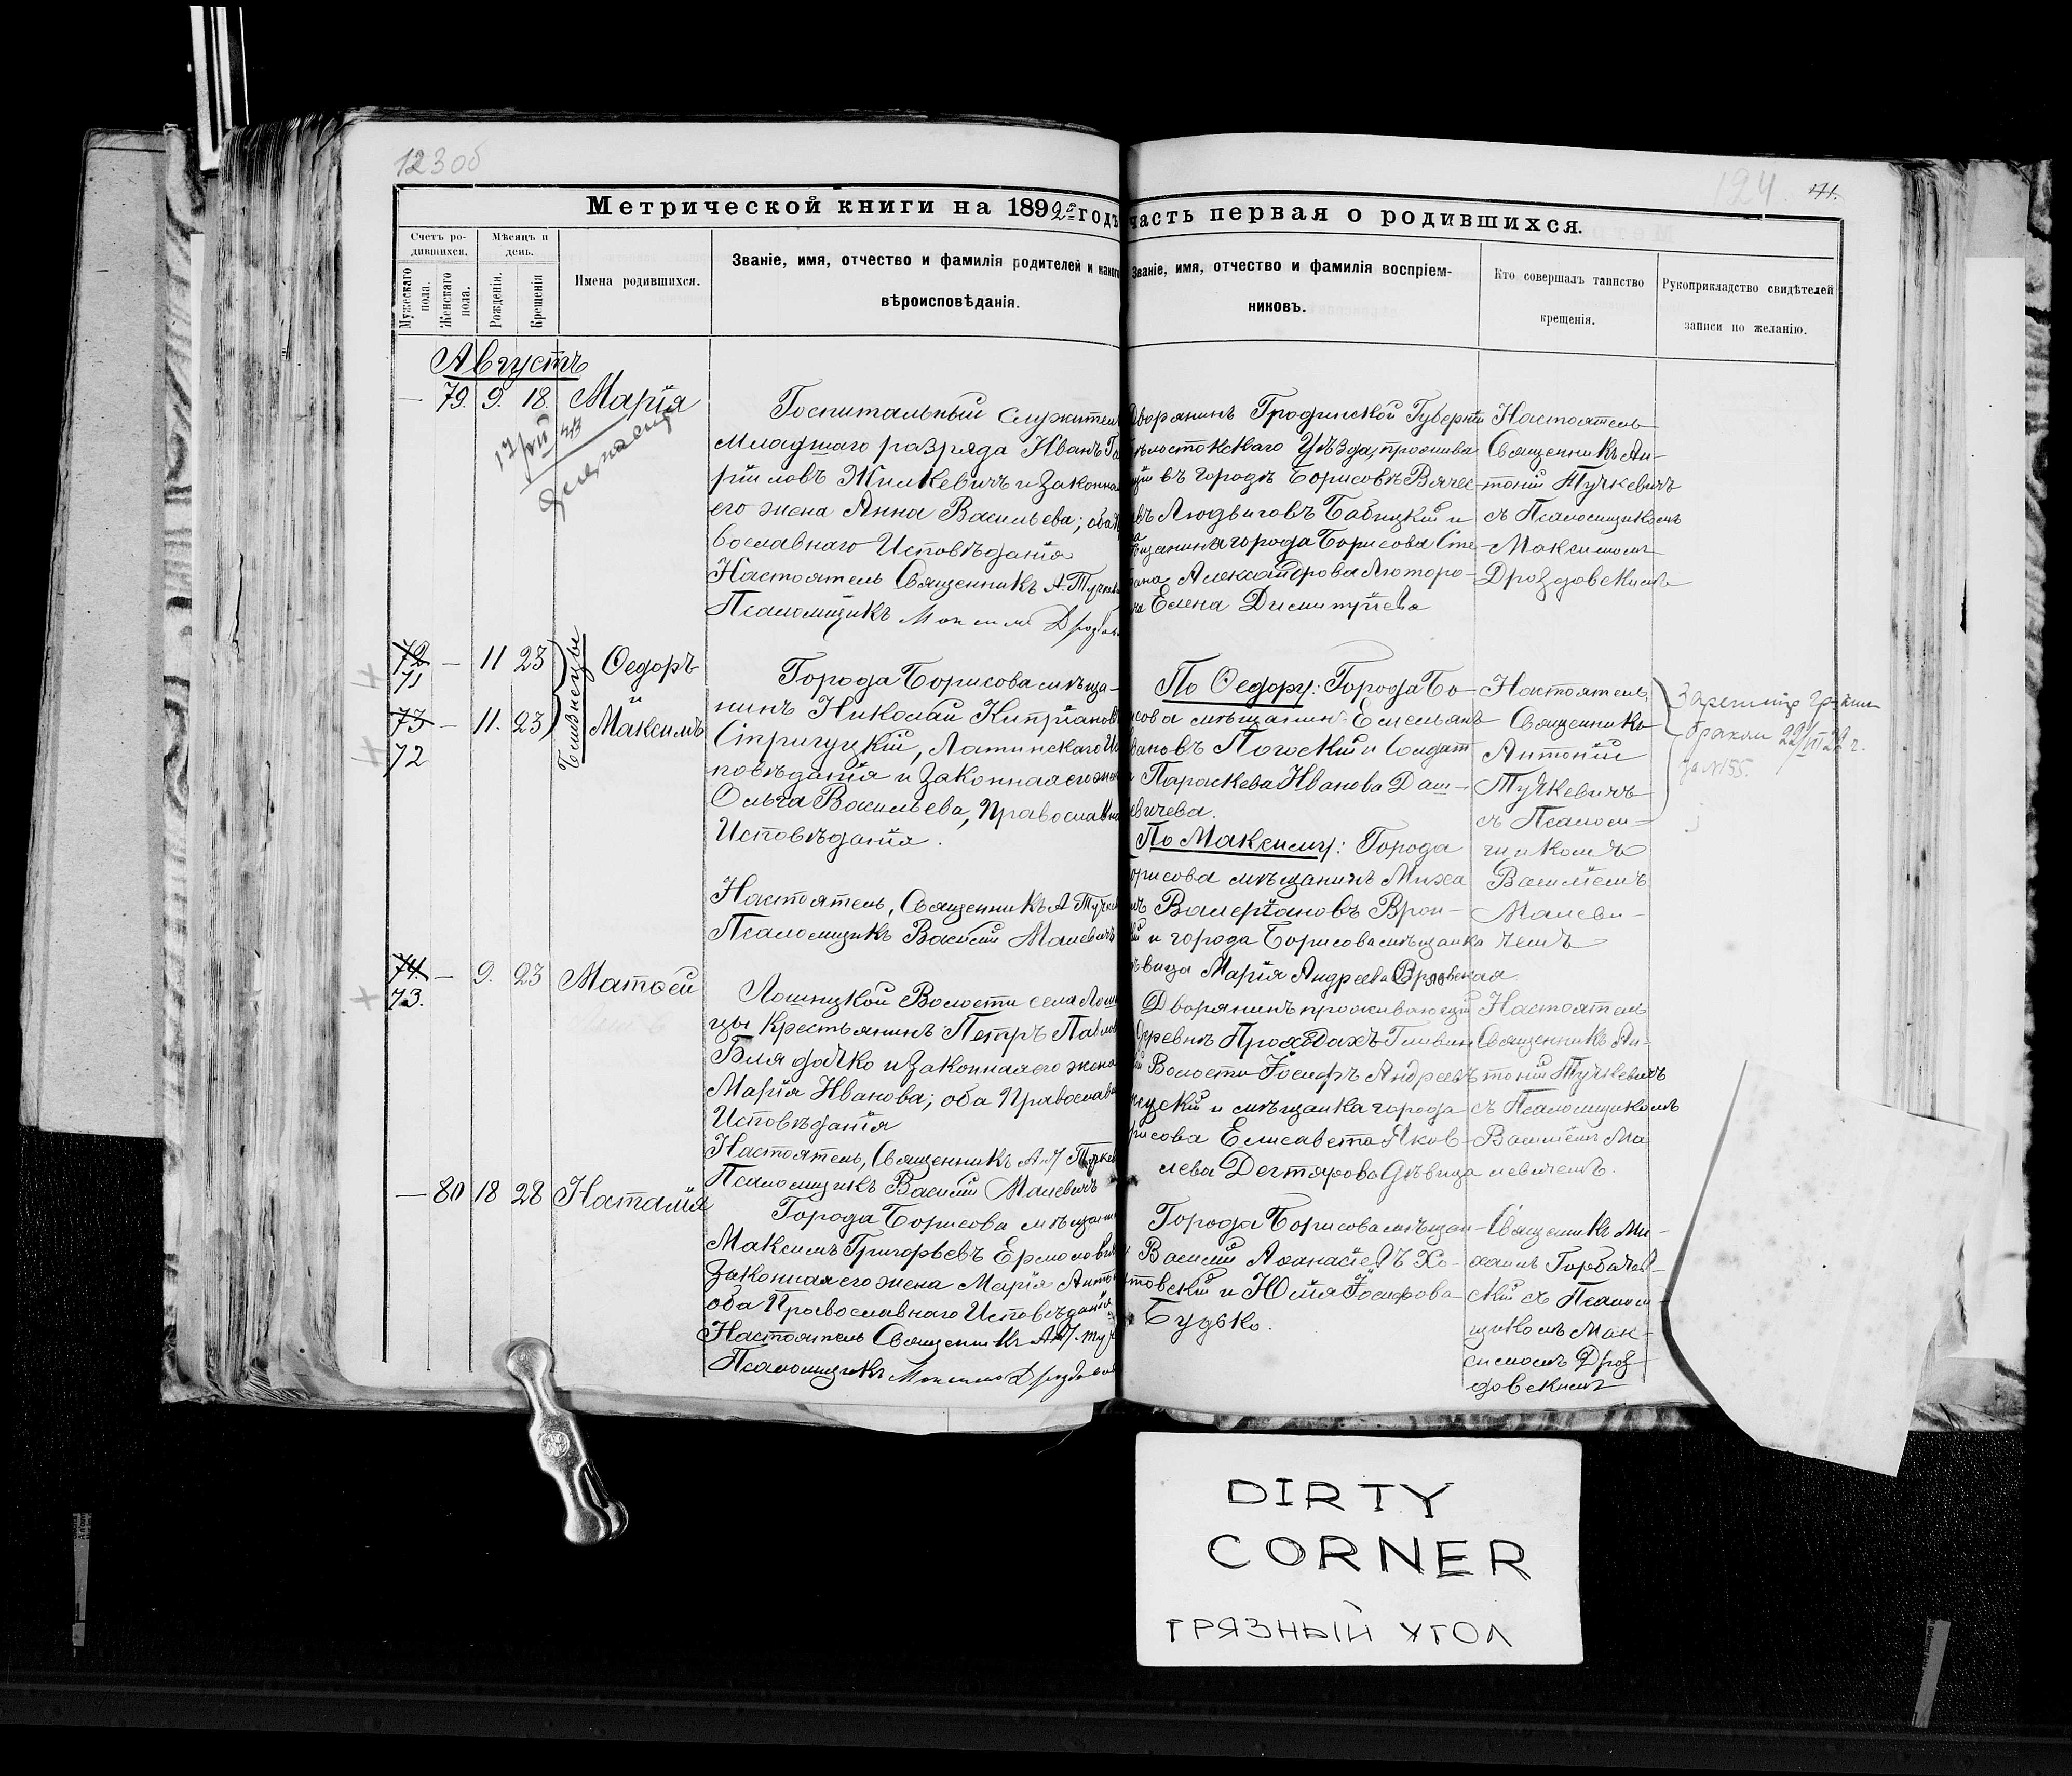 123об
124
171.
Метрической книги на 1892й годъ
часть первая о родившихся.
Счетъ родившихся.
Мужескаго пола.
Женскаго пола.
Мѣсяцъ и день.
Рожденія.
Крещенія
Имена родившихся.
Званіе, имя, отчество и фамилія родителей и какого
вѣроисповѣданія.
Званіе, имя, отчество и фамилія воспріем-
никовъ.
Кто совершалъ таинство
крещенія.
Рукоприкладство свидѣтелей
записи по желанію.
Августъ
— 79. 9. 18 Марія
Госпитальный служител
Младшаго разряда Иванъ Га
рииловъ Жилкевичъ и законна
его жена Анна Васильева; оба
вославнаго Исповѣданія
Настоятель Священникъ А. Тучке
Псаломщикъ Максимъ Дрозд
Дворянинъ Гродненской Губерніи
ѣлостокскаго Уѣзда, прожива
щій въ городѣ Борисовѣ Вячес-
авъ Людвиговъ Бабицкій и
ѣщанина города Борисова Сте-
фана Александрова Люторо-
на Елена Димитріева
Настоятель
Священникъ Ан-
тоній Тучкевичъ
съ Псаломщикомъ
Максимомъ
Дроздовскимъ
72 — 11 23 Ѳедоръ
71
и
73 — 11. 23 Максимъ
72
Близнецы
Города Борисова мѣща-
нинъ Николай Кипріановъ
Стригуцкій, Латинскаго Ис
повѣданія и законная его жен
Ольга Васильева, Православна
Исповѣданія.
Настоятель, Священникъ А Тучке
Псаломщикъ Василій Малевичъ
По Ѳедору: Города Бо-
исова мѣщанинъ Емельянъ
вановъ Погоскій и Солдат
Параскева Иванова Даш-
евичева.
По Максиму: Города
орисова мѣщанинъ Миха
лъ Валеріановъ Врон-
кій и города Борисова мѣщанка
ѣвица Марія Андреева Вронская
Настоятель
Священникъ
Антоній
Тучкевичъ
съ Псалом-
щикомъ
Василіемъ
Малеви-
чемъ
браком 29/VI 22 г.
за №155.
74. — 9. 23 Матѳей
73.
Лошницкой Волости села Лош
цы Крестьянинъ Петръ Павлов
Блядочко и законная его жена
Марія Иванова; оба Православн
Исповѣданія
Настоятель, Священникъ Ант Тучкев
Псаломщикъ Василій Малевичъ
Дворянинъ проживающій
деревнѣ Прохадахъ Гливин
ой Волости Іосифъ Андреевъ
нецкій и мѣщанка города
рисова Елисавета Яков-
лева Дегтярова дѣвица
Настоятель
Священникъ Ан-
тоній Тучкевичъ
съ Псаломщикомъ
Василіемъ Ма
левичемъ.
— 80 18 28 Наталія
Города Борисова мѣщани
Максимъ Григорьевъ Ермолови
законная его жена Марія Анто
оба Православнаго Исповѣданія
Настоятель Священникъ Ант. Туч
Псаломщикъ Максимъ Дроздовс
Города Борисова мѣщан-
Василій Аѳанасіевъ Хо-
товскій и Юлія Іосифова
Будько.
Священникъ Ми-
хаилъ Горбачев-
скій съ Псалом-
щикомъ Мак-
симомъ Дроз-
довскимъ
DIRTY
CORNER
ГРЯЗНЫЙ УГОЛ